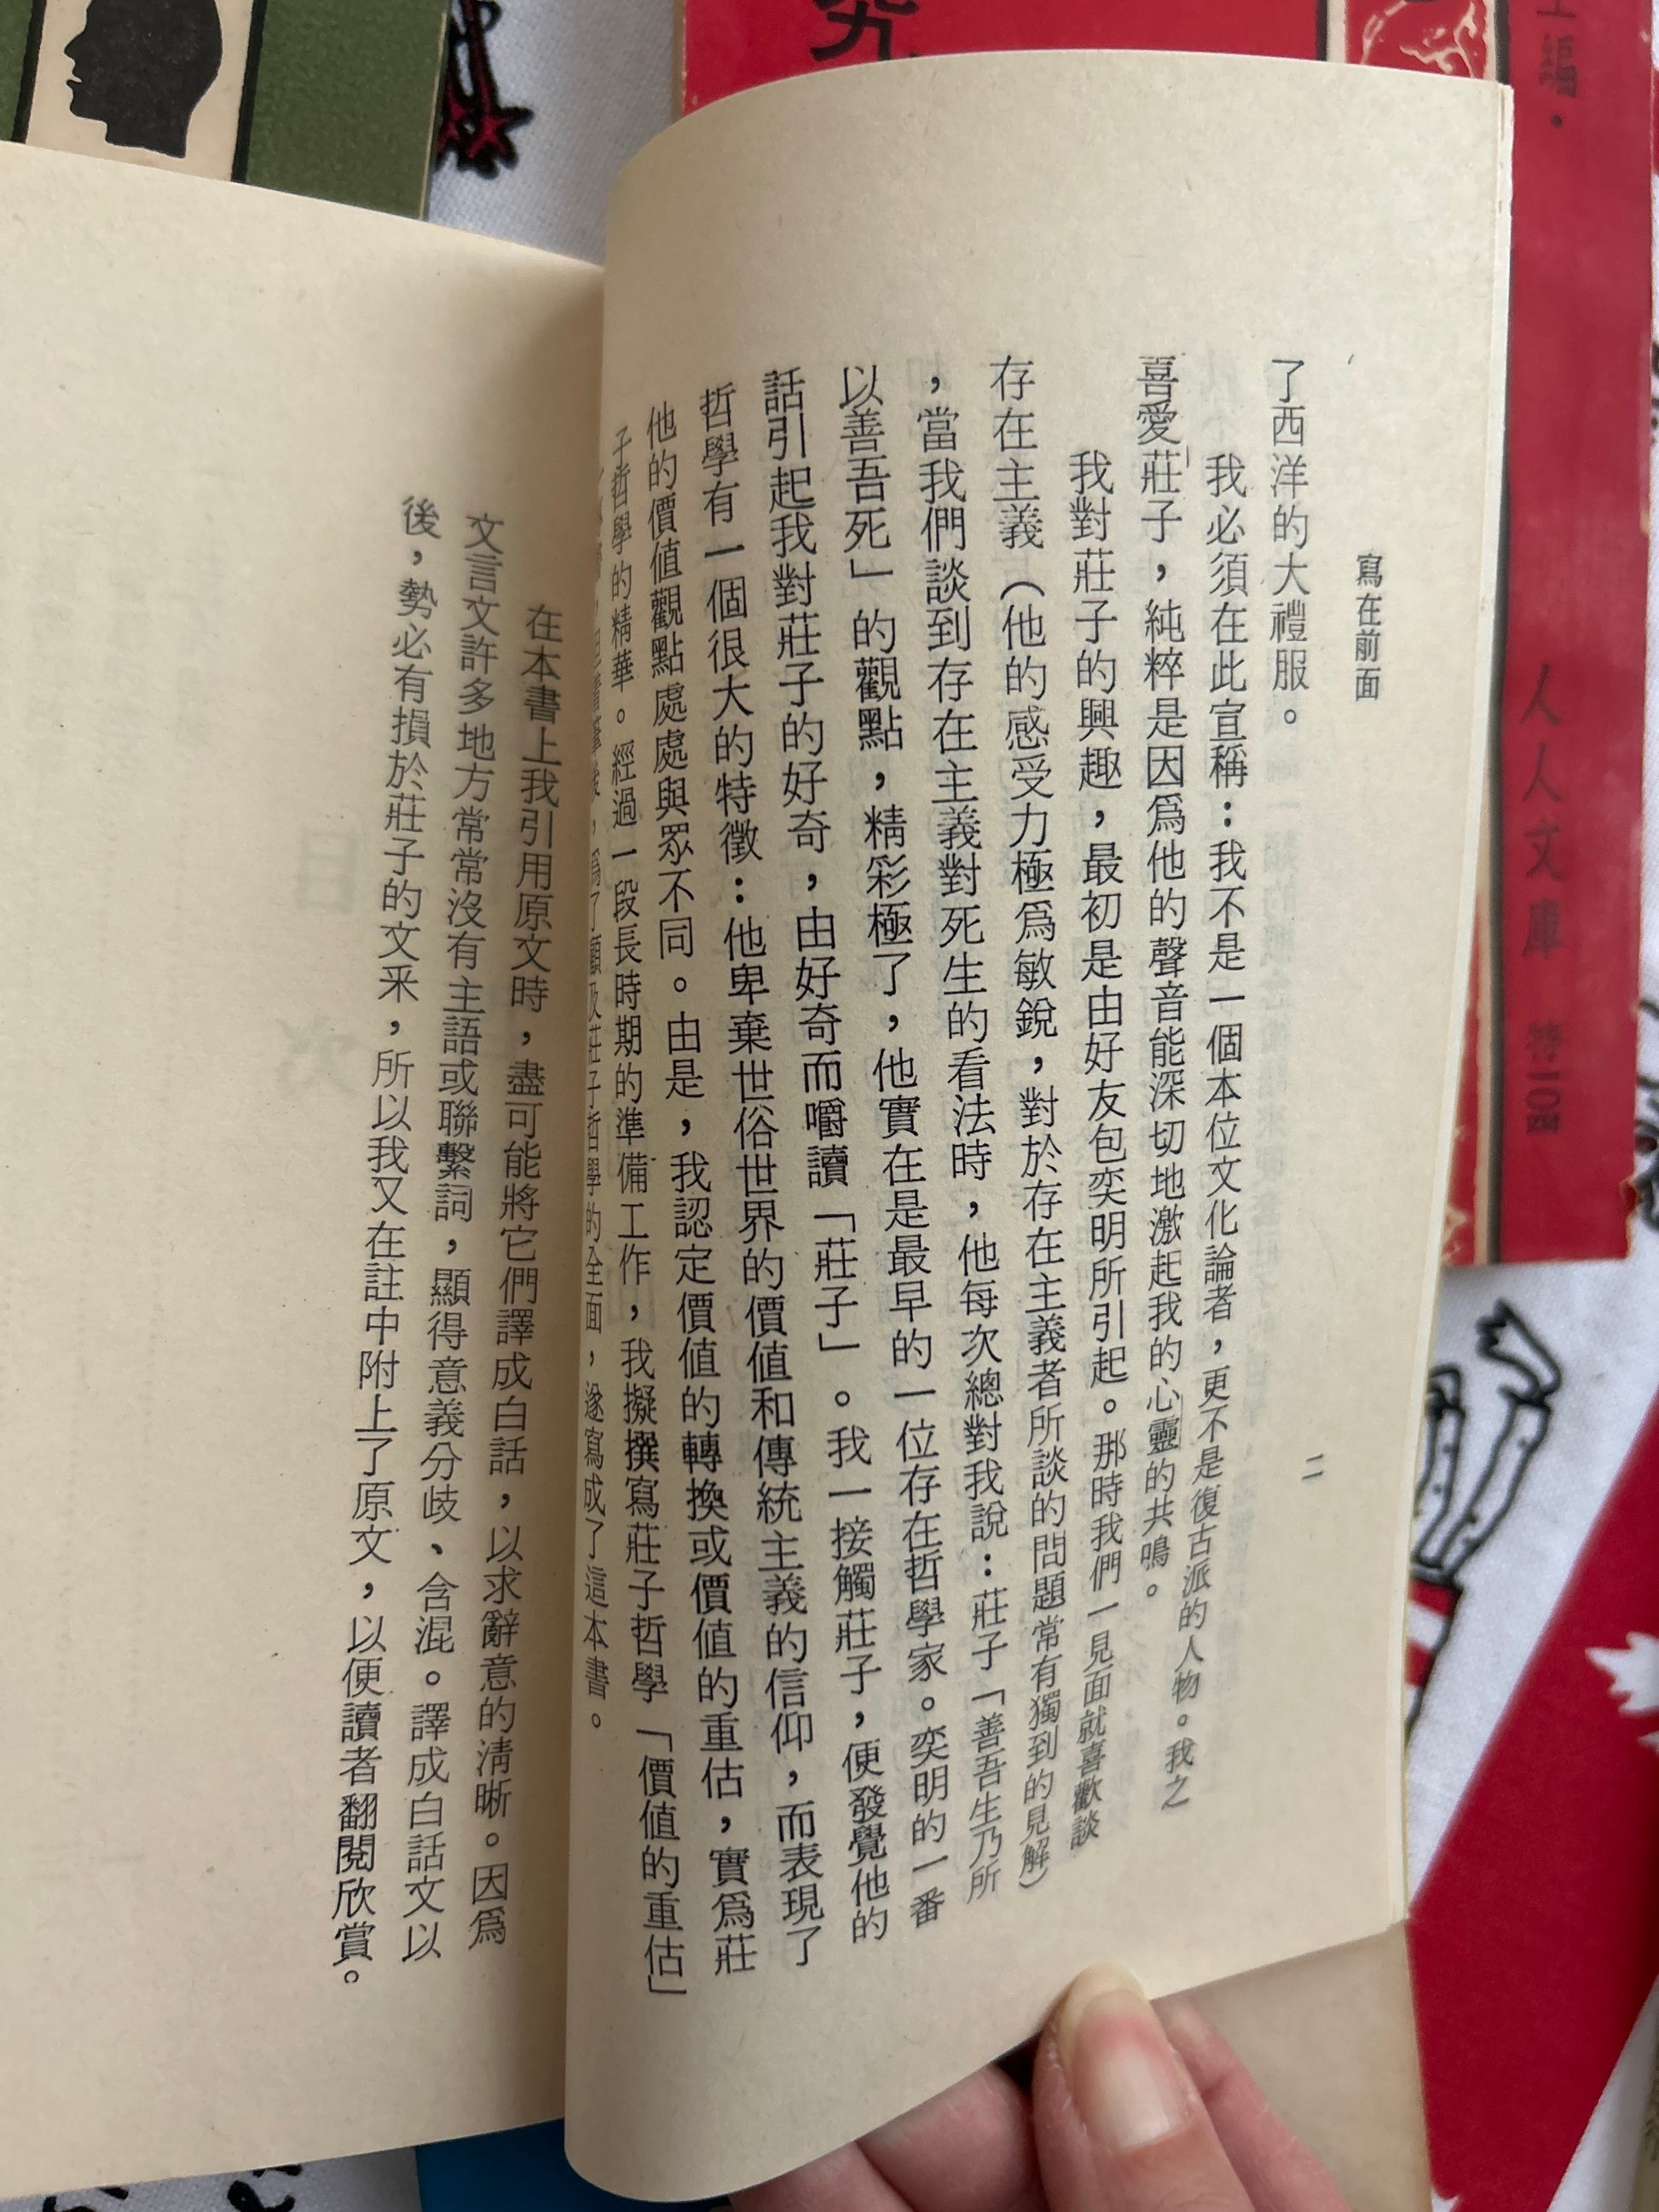 寫在前面
二
了西洋的大禮服。
我必須在此宣稱：我不是一個本位文化論者，更不是復古派的人物。我之
喜愛莊子，純粹是因爲他的聲音能深切地激起我的心靈的共鳴。
我對莊子的興趣，最初是由好友包奕明所引起。那時我們一見面就喜歡談
存在主義（他的感受力極爲敏銳，對於存在主義者所談的問題常有獨到的見解）
，當我們談到存在主義對死生的看法時，他每次總對我說：莊子「善吾生乃所
以善吾死」的觀點，精彩極了，他實在是最早的一位存在哲學家。奕明的一番
話引起我對莊子的好奇，由好奇而嚼讀「莊子」。我一接觸莊子，便發覺他的
哲學有一個很大的特徵：他卑棄世俗世界的價值和傳統主義的信仰，而表現了
他的價值觀點處處與眾不同。由是，我認定價值的轉換或價值的重估，實爲莊
子哲學的精華。經過一段長時期的準備工作，我擬撰寫莊子哲學「價值的重估」
，爲了顧及莊子哲學的全面，遂寫成了這本書。
在本書上我引用原文時，盡可能將它們譯成白話，以求辭意的清晰。因爲
文言文許多地方常常沒有主語或聯繫詞，顯得意義分歧、含混。譯成白話文以
後，勢必有損於莊子的文釆，所以我又在註中附上了原文，以便讀者翻閱欣賞。
究
編．
人人文庫
特一〇四